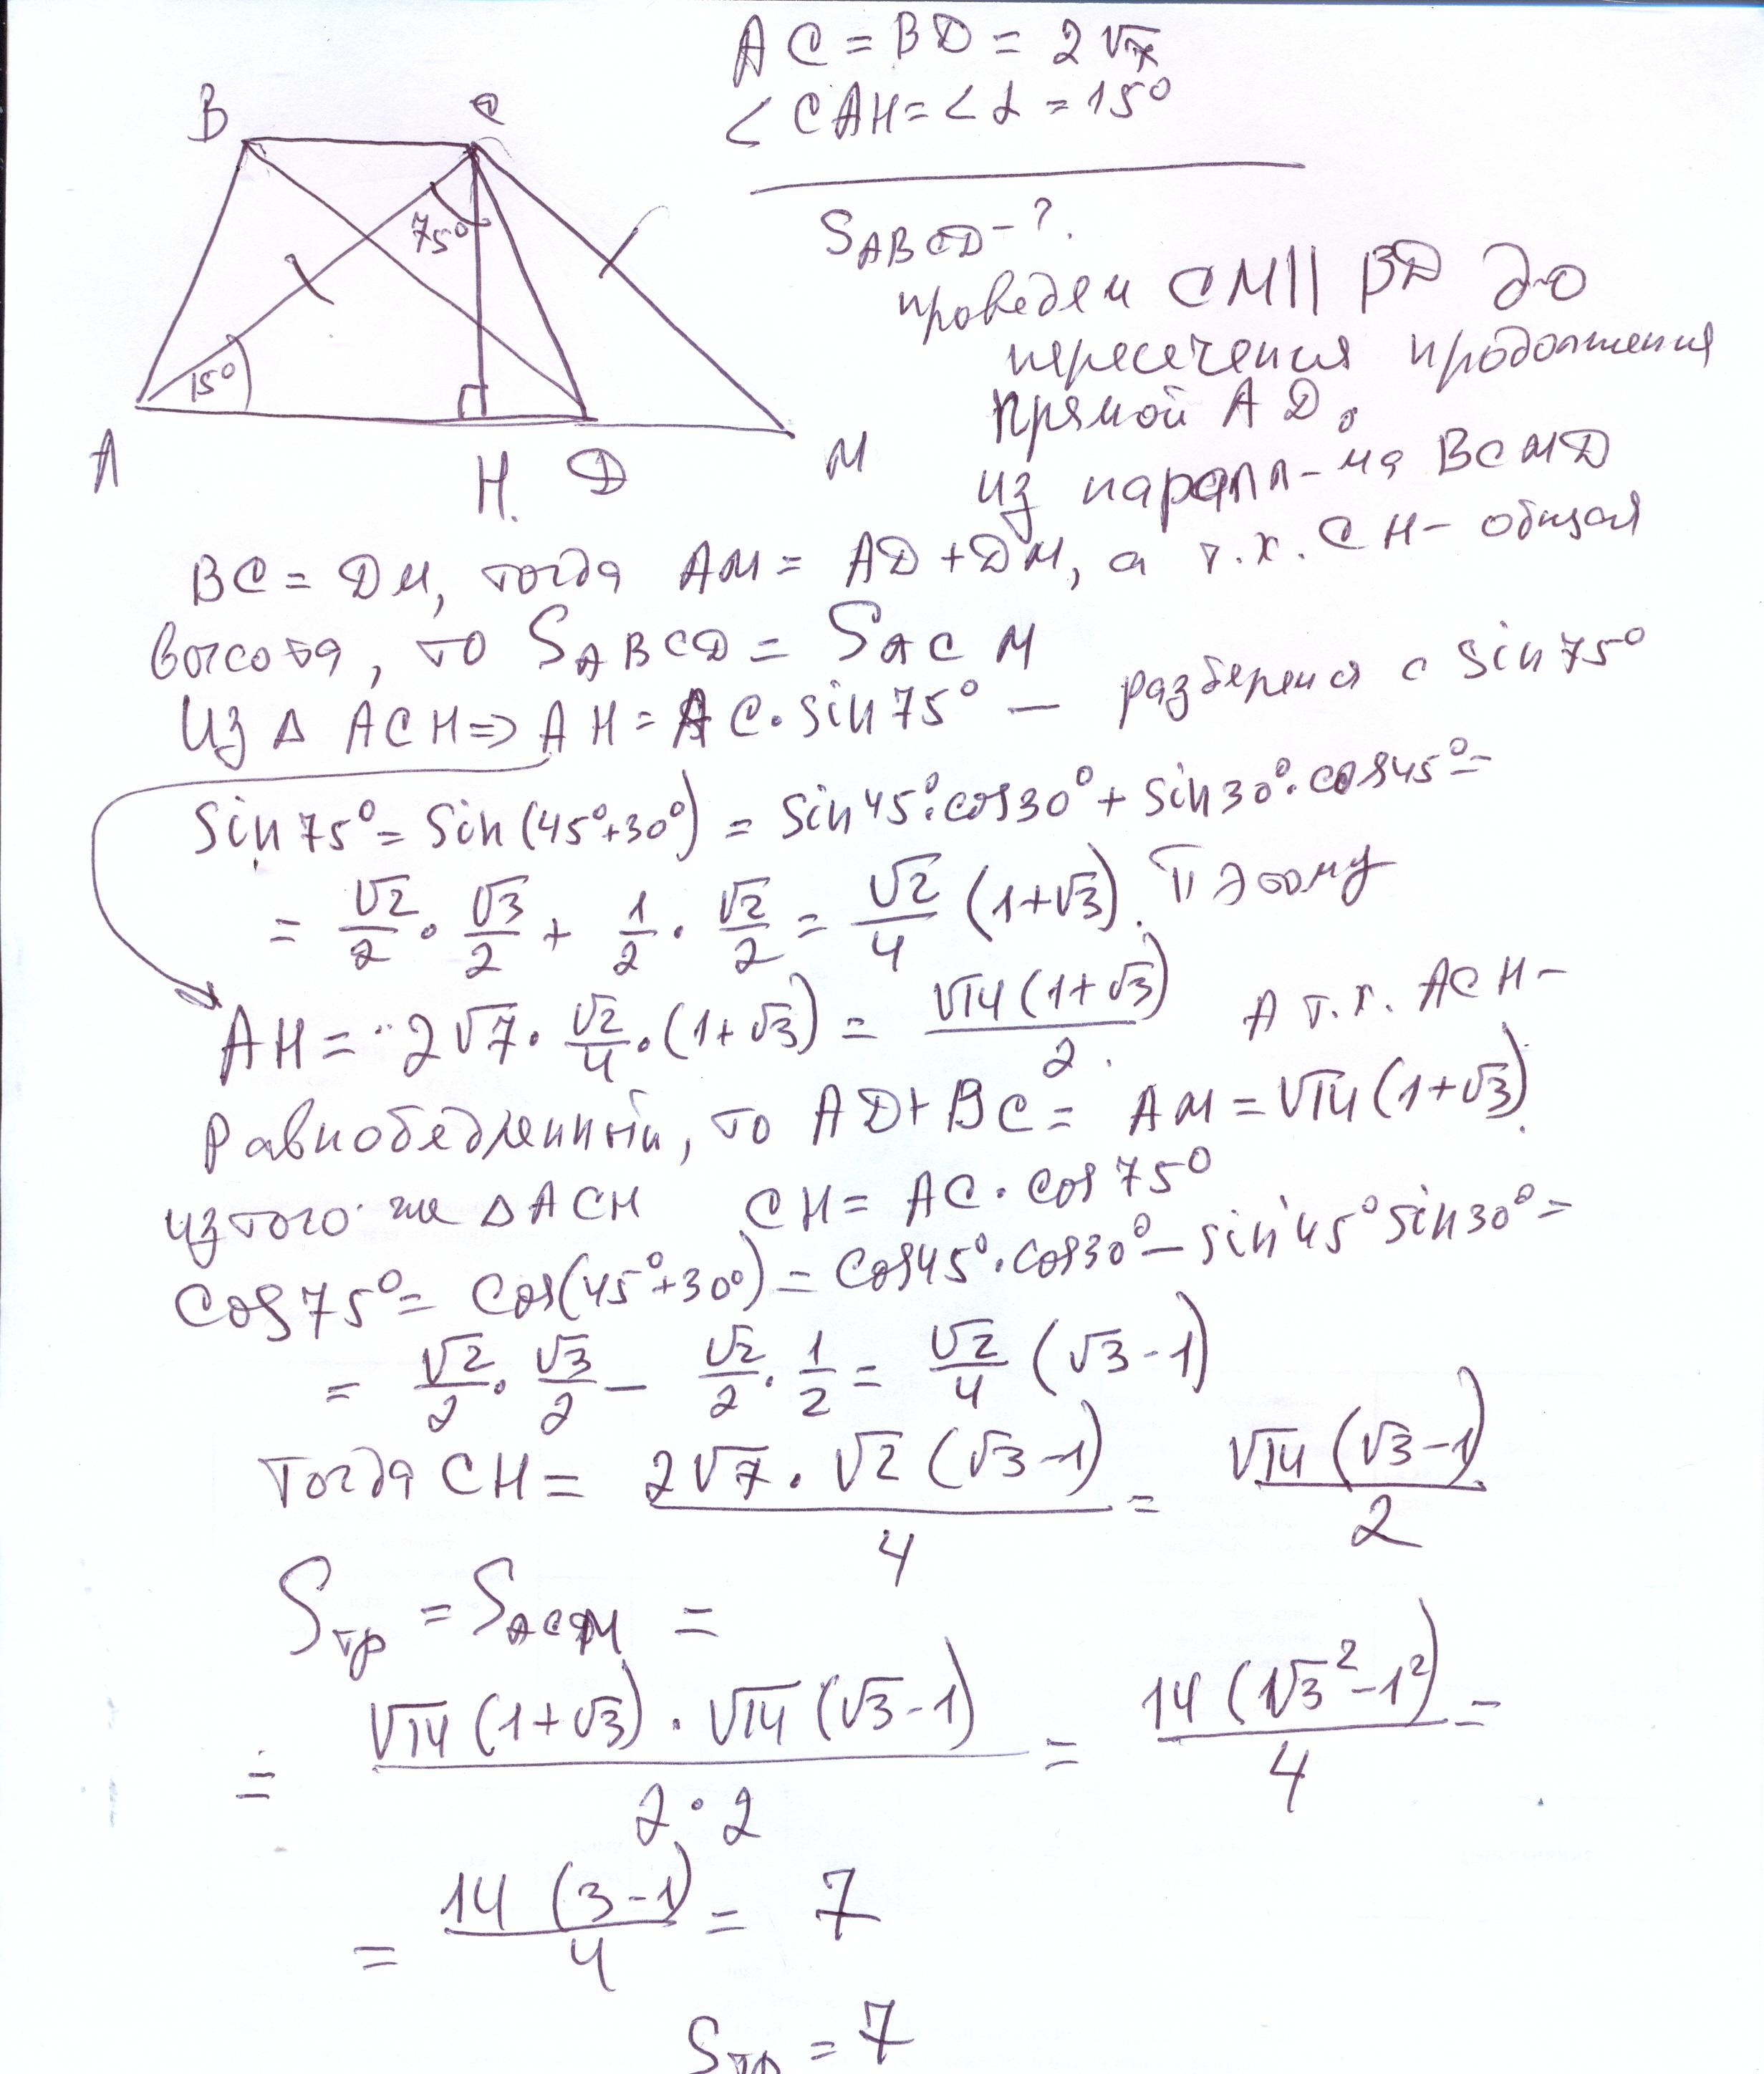 AC = BD = 2√7
< CAH = < α = 15°
B
C
75°
15°
A
H.
D
M
SABCD - ?
проведем CM || BD до
пересечения продолжения
прямой AD.
из паралл-ма BCMD
BC = DM, тогда AM = AD + DM, а т.к. CH - общая
высота, то SABCD = SACM
Из Δ ACH => AH = AC · sin 75° — разберемся с sin 75°
Sin 75° = Sin (45°+30°) = Sin 45° · cos 30° + Sin 30° · cos 45° =
= √2/2 · √3/2 + 1/2 · √2/2 = √2/4 (1+√3). Поэтому
AH = 2√7 · √2/4 · (1+√3) = √14 (1+√3)/2. А т.к. ACH -
равнобедренный, то AD + BC = AM = √14 (1+√3).
из того же Δ ACH CH = AC · cos 75°
Cos 75° = Cos (45°+30°) = Cos 45° · cos 30° - sin 45° sin 30° =
= √2/2 · √3/2 - √2/2 · 1/2 = √2/4 (√3 - 1)
Тогда CH = 2√7 · √2 (√3 - 1)/4 = √14 (√3 - 1)/2
Sтр = SACM =
= √14 (1+√3) · √14 (√3 - 1)/2 · 2 = 14 (√3² - 1²)/4 =
= 14 (3 - 1)/4 = 7
Sтр = 7